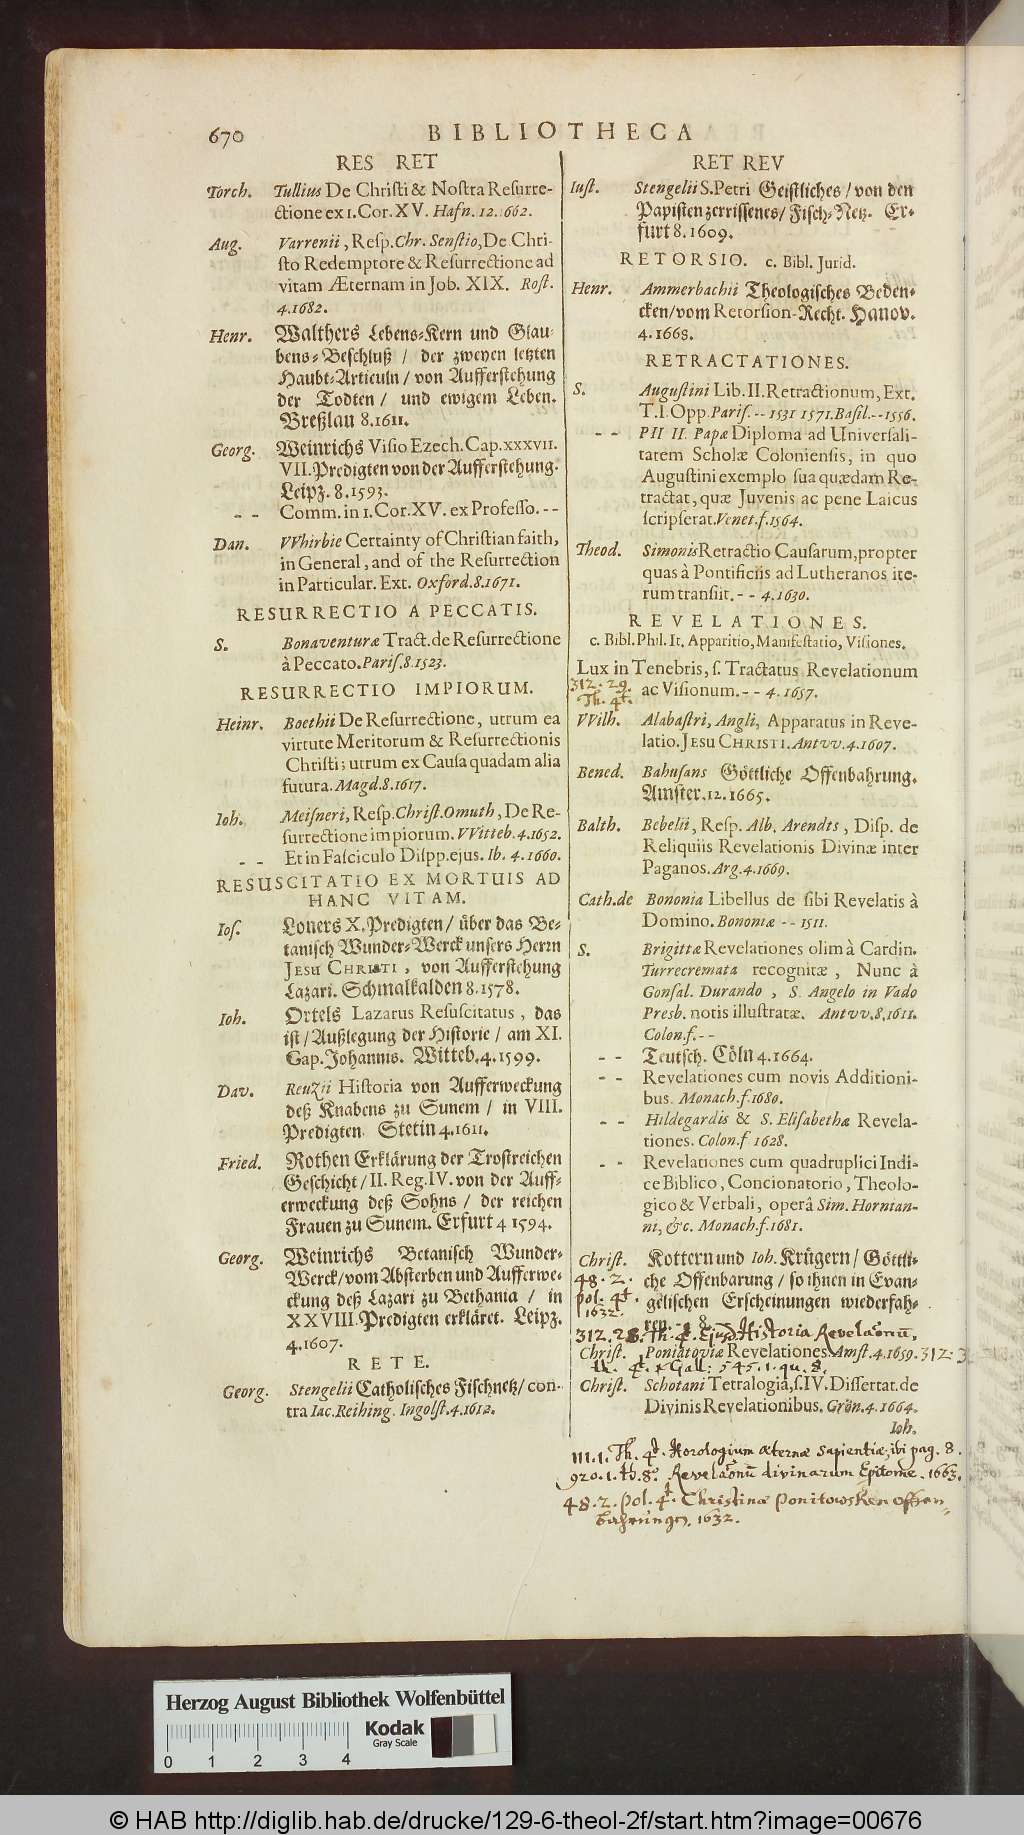 670
BIBLIOTHECA
RES RET
Torch. Tullius De Christi & Nostra Resurre-
ctione ex 1. Cor. XV. Hafn. 12. 662.
Aug. Varrenii, Resp. Chr. Senstio, De Chri-
sto Redemptore & Resurrectione ad
vitam Æternam in Job. XIX. Rost.
4. 1682.
Henr. Walthers Lebens-Kern und Glau-
bens-Beschluß / der zweyen letzten
Haubt-Articuln / von Aufferstehung
der Todten / und ewigem Leben.
Breßlau 8. 1611.
Georg. Weinrichs Visio Ezech. Cap. XXXVII.
VII. Predigten von der Aufferstehung.
Leipz. 8. 1593.
- - Comm. in 1. Cor. XV. ex Professo. - -
Dan. VVhirbie Certainty of Christian faith,
in General, and of the Resurrection
in Particular. Ext. Oxford. 8. 1671.
RESURRECTIO A PECCATIS.
S. Bonaventuræ Tract. de Resurrectione
à Peccato. Paris. 8. 1523.
RESURRECTIO IMPIORUM.
Heinr. Boethii De Resurrectione, utrum ea
virtute Meritorum & Resurrectionis
Christi; utrum ex Causa quadam alia
futura. Magd. 8. 1617.
Ioh. Meisneri, Resp. Christ. Omuth, De Re-
surrectione impiorum. VVitteb. 4. 1652.
- - Et in Fasciculo Dispp. ejus. Ib. 4. 1660.
RESUSCITATIO EX MORTUIS AD
HANC VITAM.
Ios. Loners X. Predigten / über das Be-
tanisch Wunder-Werck unsers Herrn
JESU CHRISTI, von Aufferstehung
Lazari. Schmalkalden 8. 1578.
Ioh. Ortels Lazarus Resuscitatus, das
ist / Außlegung der Historie / am XI.
Cap. Johannis. Witteb. 4. 1599.
Dav. Reuzii Historia von Aufferweckung
deß Knabens zu Sunem / in VIII.
Predigten. Stetin 4. 1611.
Fried. Rothen Erklärung der Trostreichen
Geschicht / II. Reg. IV. von der Auff-
erweckung deß Sohns / der reichen
Frauen zu Sunem. Erfurt 4 1594.
Georg. Weinrichs Betanisch Wunder-
Werck / vom Absterben und Aufferwe-
ckung deß Lazari zu Bethania / in
XXVIII. Predigten erkläret. Leipz.
4. 1607.
RETE.
Georg. Stengelii Catholisches Fischnetz / con-
tra Iac. Reihing. Ingolst. 4. 1612.
RET REV
Iust. Stengelii S. Petri Geistliches / von den
Papisten zerrissenes / Fisch-Netz. Er-
furt 8. 1609.
RETORSIO. c. Bibl. Jurid.
Henr. Ammerbachii Theologisches Beden-
cken / vom Retorsion-Recht. Hanov.
4. 1668.
RETRACTATIONES.
S. Augustini Lib. II. Retractionum, Ext.
T. I. Opp. Paris. - - 1531 1571. Basil. - - 1556.
- - PII II. Papæ Diploma ad Universali-
tatem Scholæ Coloniensis, in quo
Augustini exemplo sua quædam Re-
tractat, quæ Juvenis ac pene Laicus
scripserat. Venet. f. 1564.
Theod. Simonis Retractio Causarum, propter
quas à Pontificiis ad Lutheranos ite-
rum transiit. - - 4. 1630.
REVELATIONES.
c. Bibl. Phil. It. Apparitio, Manifestatio, Visiones.
Lux in Tenebris, s. Tractatus Revelationum
312. 29. ac Visionum. - - 4. 1657.
Th. 4t.
VVilh. Alabastri, Angli, Apparatus in Reve-
latio. JESU CHRISTI. Antvv. 4. 1607.
Bened. Bahusans Göttliche Offenbahrung.
Amster. 12. 1665.
Balth. Bebelii, Resp. Alb. Arendts, Disp. de
Reliquiis Revelationis Divinæ inter
Paganos. Arg. 4. 1669.
Cath. de Bononia Libellus de sibi Revelatis à
Domino. Bononiæ - - 1511.
S. Brigittæ Revelationes olim à Cardin.
Turrecremata recognitæ, Nunc à
Gonsal. Durando, S. Angelo in Vado
Presb. notis illustratæ. Antvv. 8. 1611.
Colon. f. - -
- - Teutsch. Cöln 4. 1664.
- - Revelationes cum novis Additioni-
bus. Monach. f. 1680.
- - Hildegardis & S. Elisabethæ Revela-
tiones. Colon. f 1628.
- - Revelationes cum quadruplici Indi-
ce Biblico, Concionatorio, Theolo-
gico & Verbali, operâ Sim. Horntan-
ni, &c. Monach. f. 1681.
Christ. Kottern und Ioh. Krügern / Göttli-
48. 2. che Offenbarung / so ihnen in Evan-
pol. 4t. gelischen Erscheinungen wiederfah-
1632. ren. - - 8. - -
312. 28. Th. 4t. Ejusd. Historia Revelaõnũ.
Christ. Poniatoviæ Revelationes. Amst. 4. 1659. 312.
th. 4t. & Gall: 545. 1. qu. 8.
Christ. Schotani Tetralogia, s. IV. Dissertat. de
Divinis Revelationibus. Grön. 4. 1664.
Ioh.
111. 1. Th. 4t. Horologium æternæ Sapientiæ, ibi pag. 8.
920. 1. th. 8o. Revelaõnũ divinarum Epitome. 1663.
48. 2. pol. 4t. Christinæ Ponitowsken Offen-
bahrungen. 1632.
Herzog August Bibliothek Wolfenbüttel
Kodak
Gray Scale
0 1 2 3 4
© HAB http://diglib.hab.de/drucke/129-6-theol-2f/start.htm?image=00676